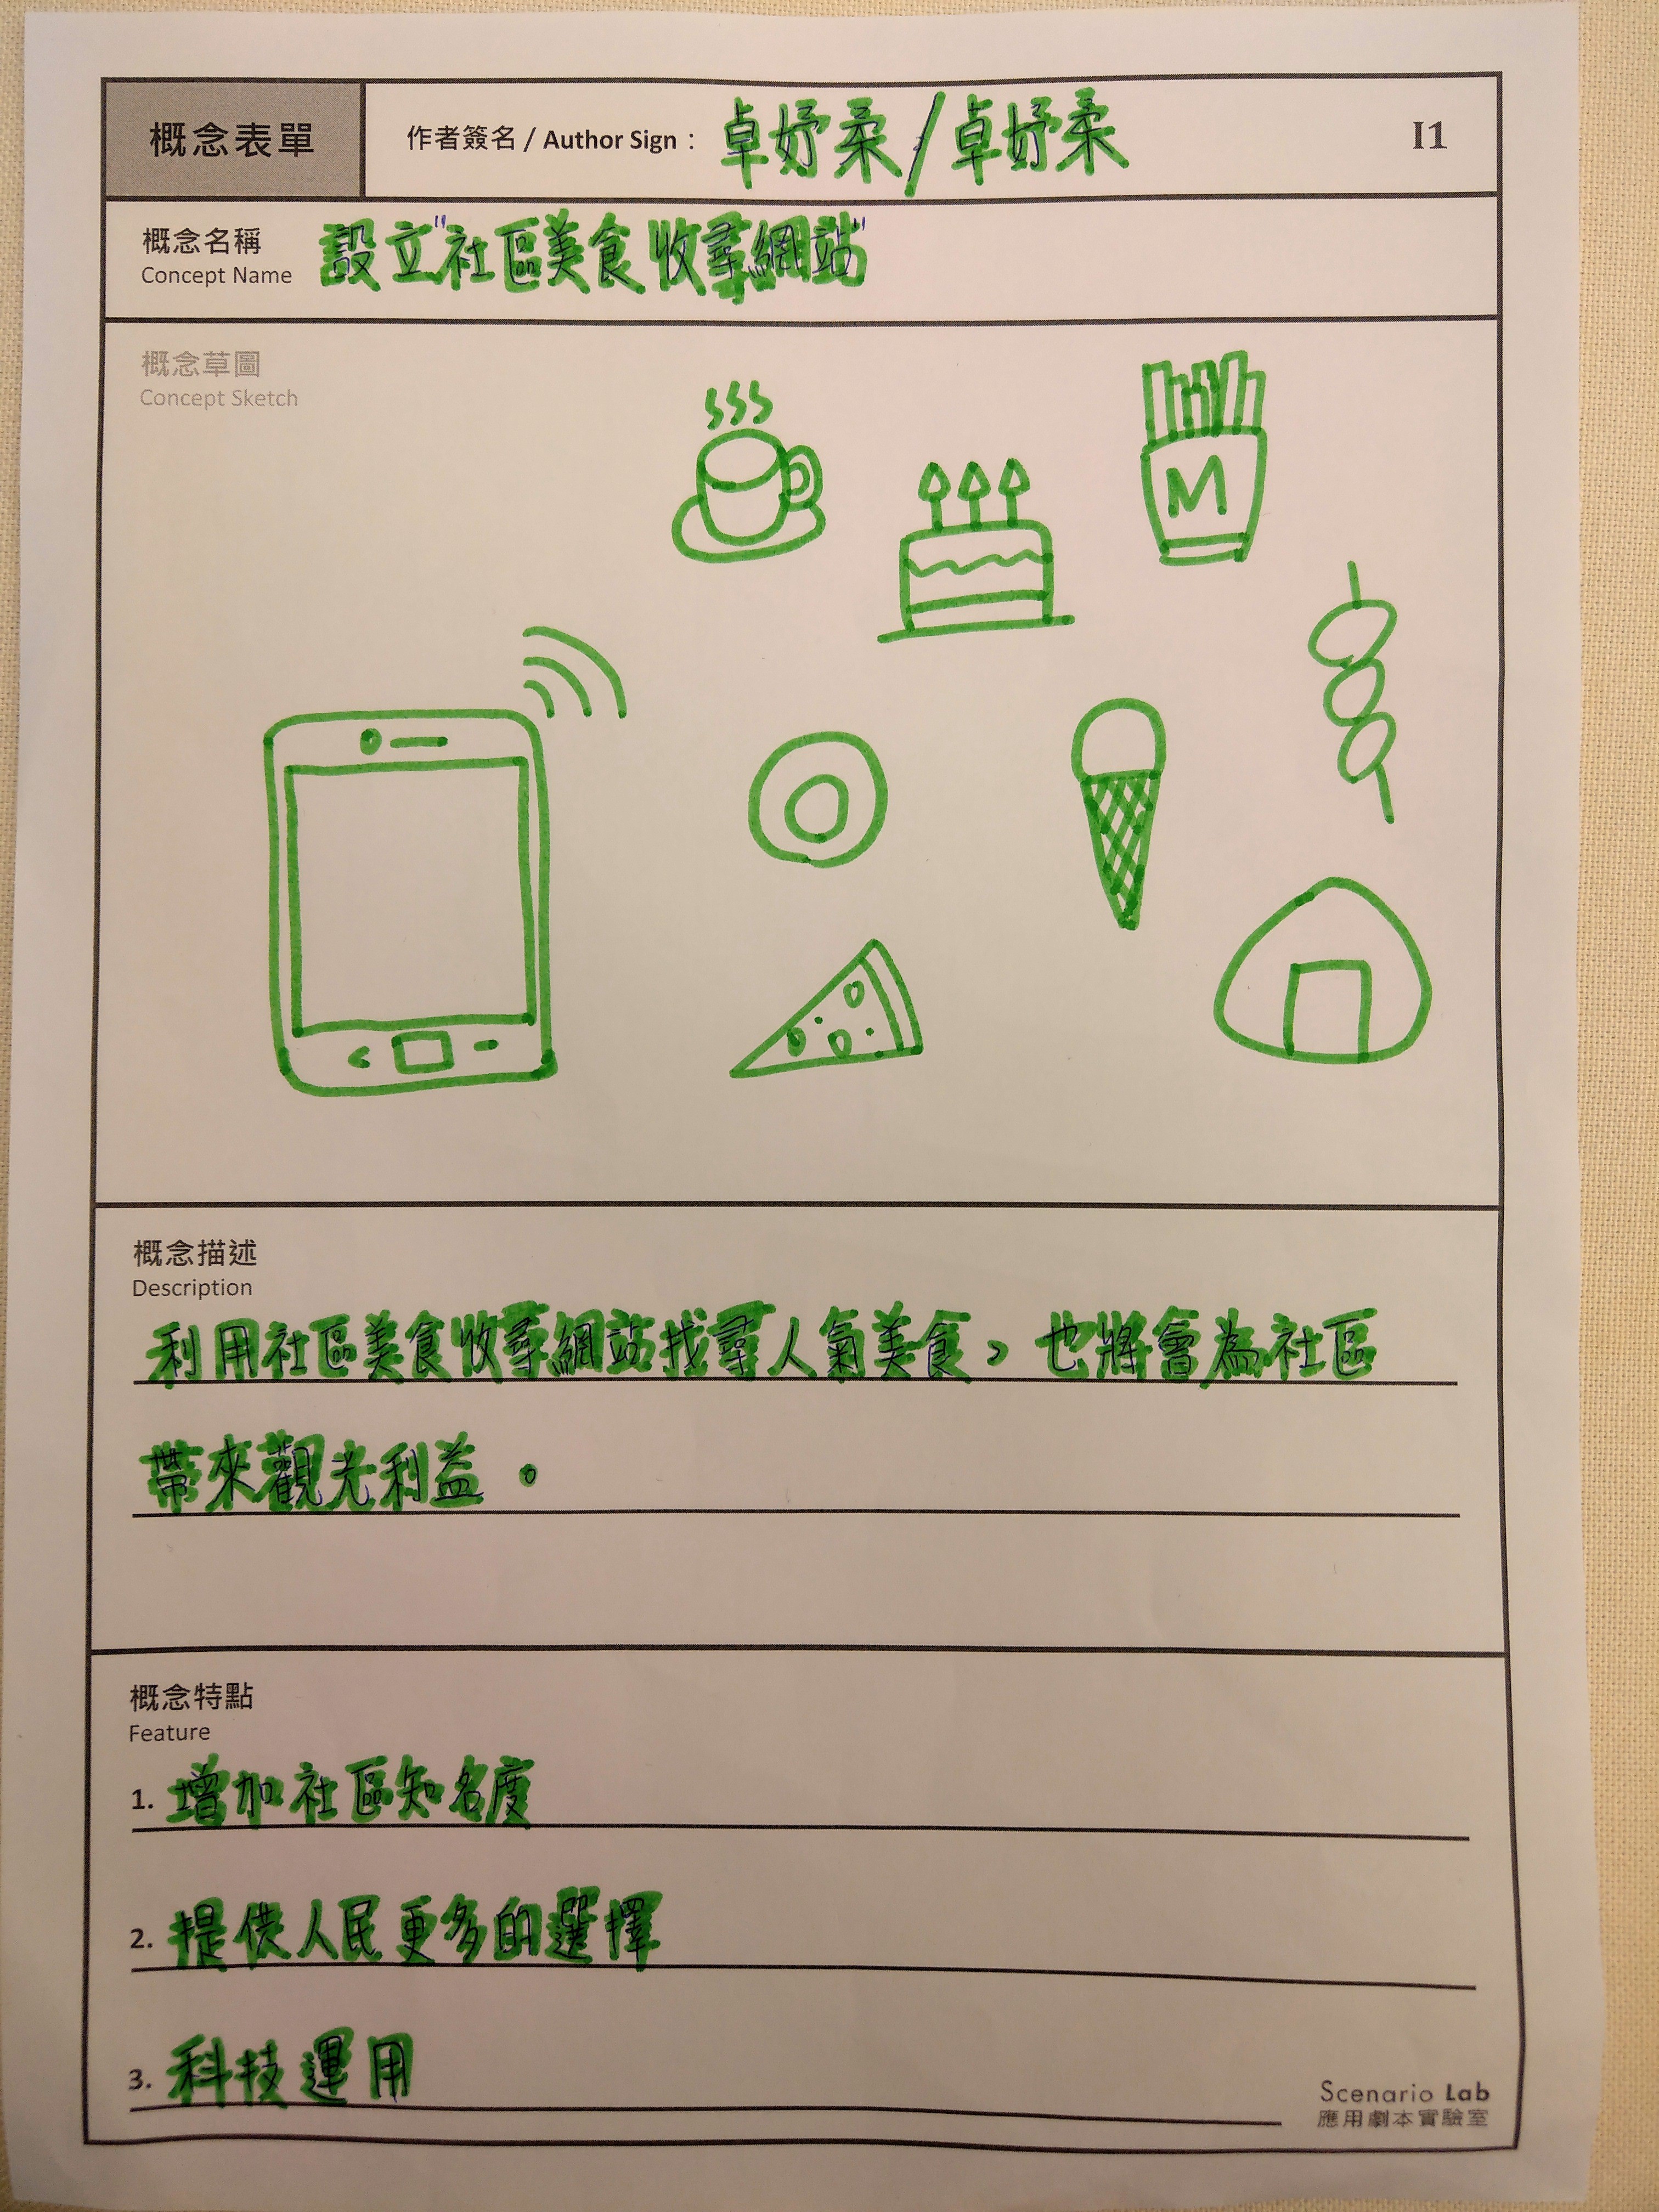 概念表單
作者簽名 / Author Sign : 卓妤柔/卓妤柔
I1
概念名稱
Concept Name
設立"社區美食收尋網站"
概念草圖
Concept Sketch
M
概念描述
Description
利用社區美食收尋網站找尋人氣美食，也將會為社區
帶來觀光利益。
概念特點
Feature
1. 增加社區知名度
2. 提供人民更多的選擇
3. 科技運用
Scenario Lab
應用劇本實驗室